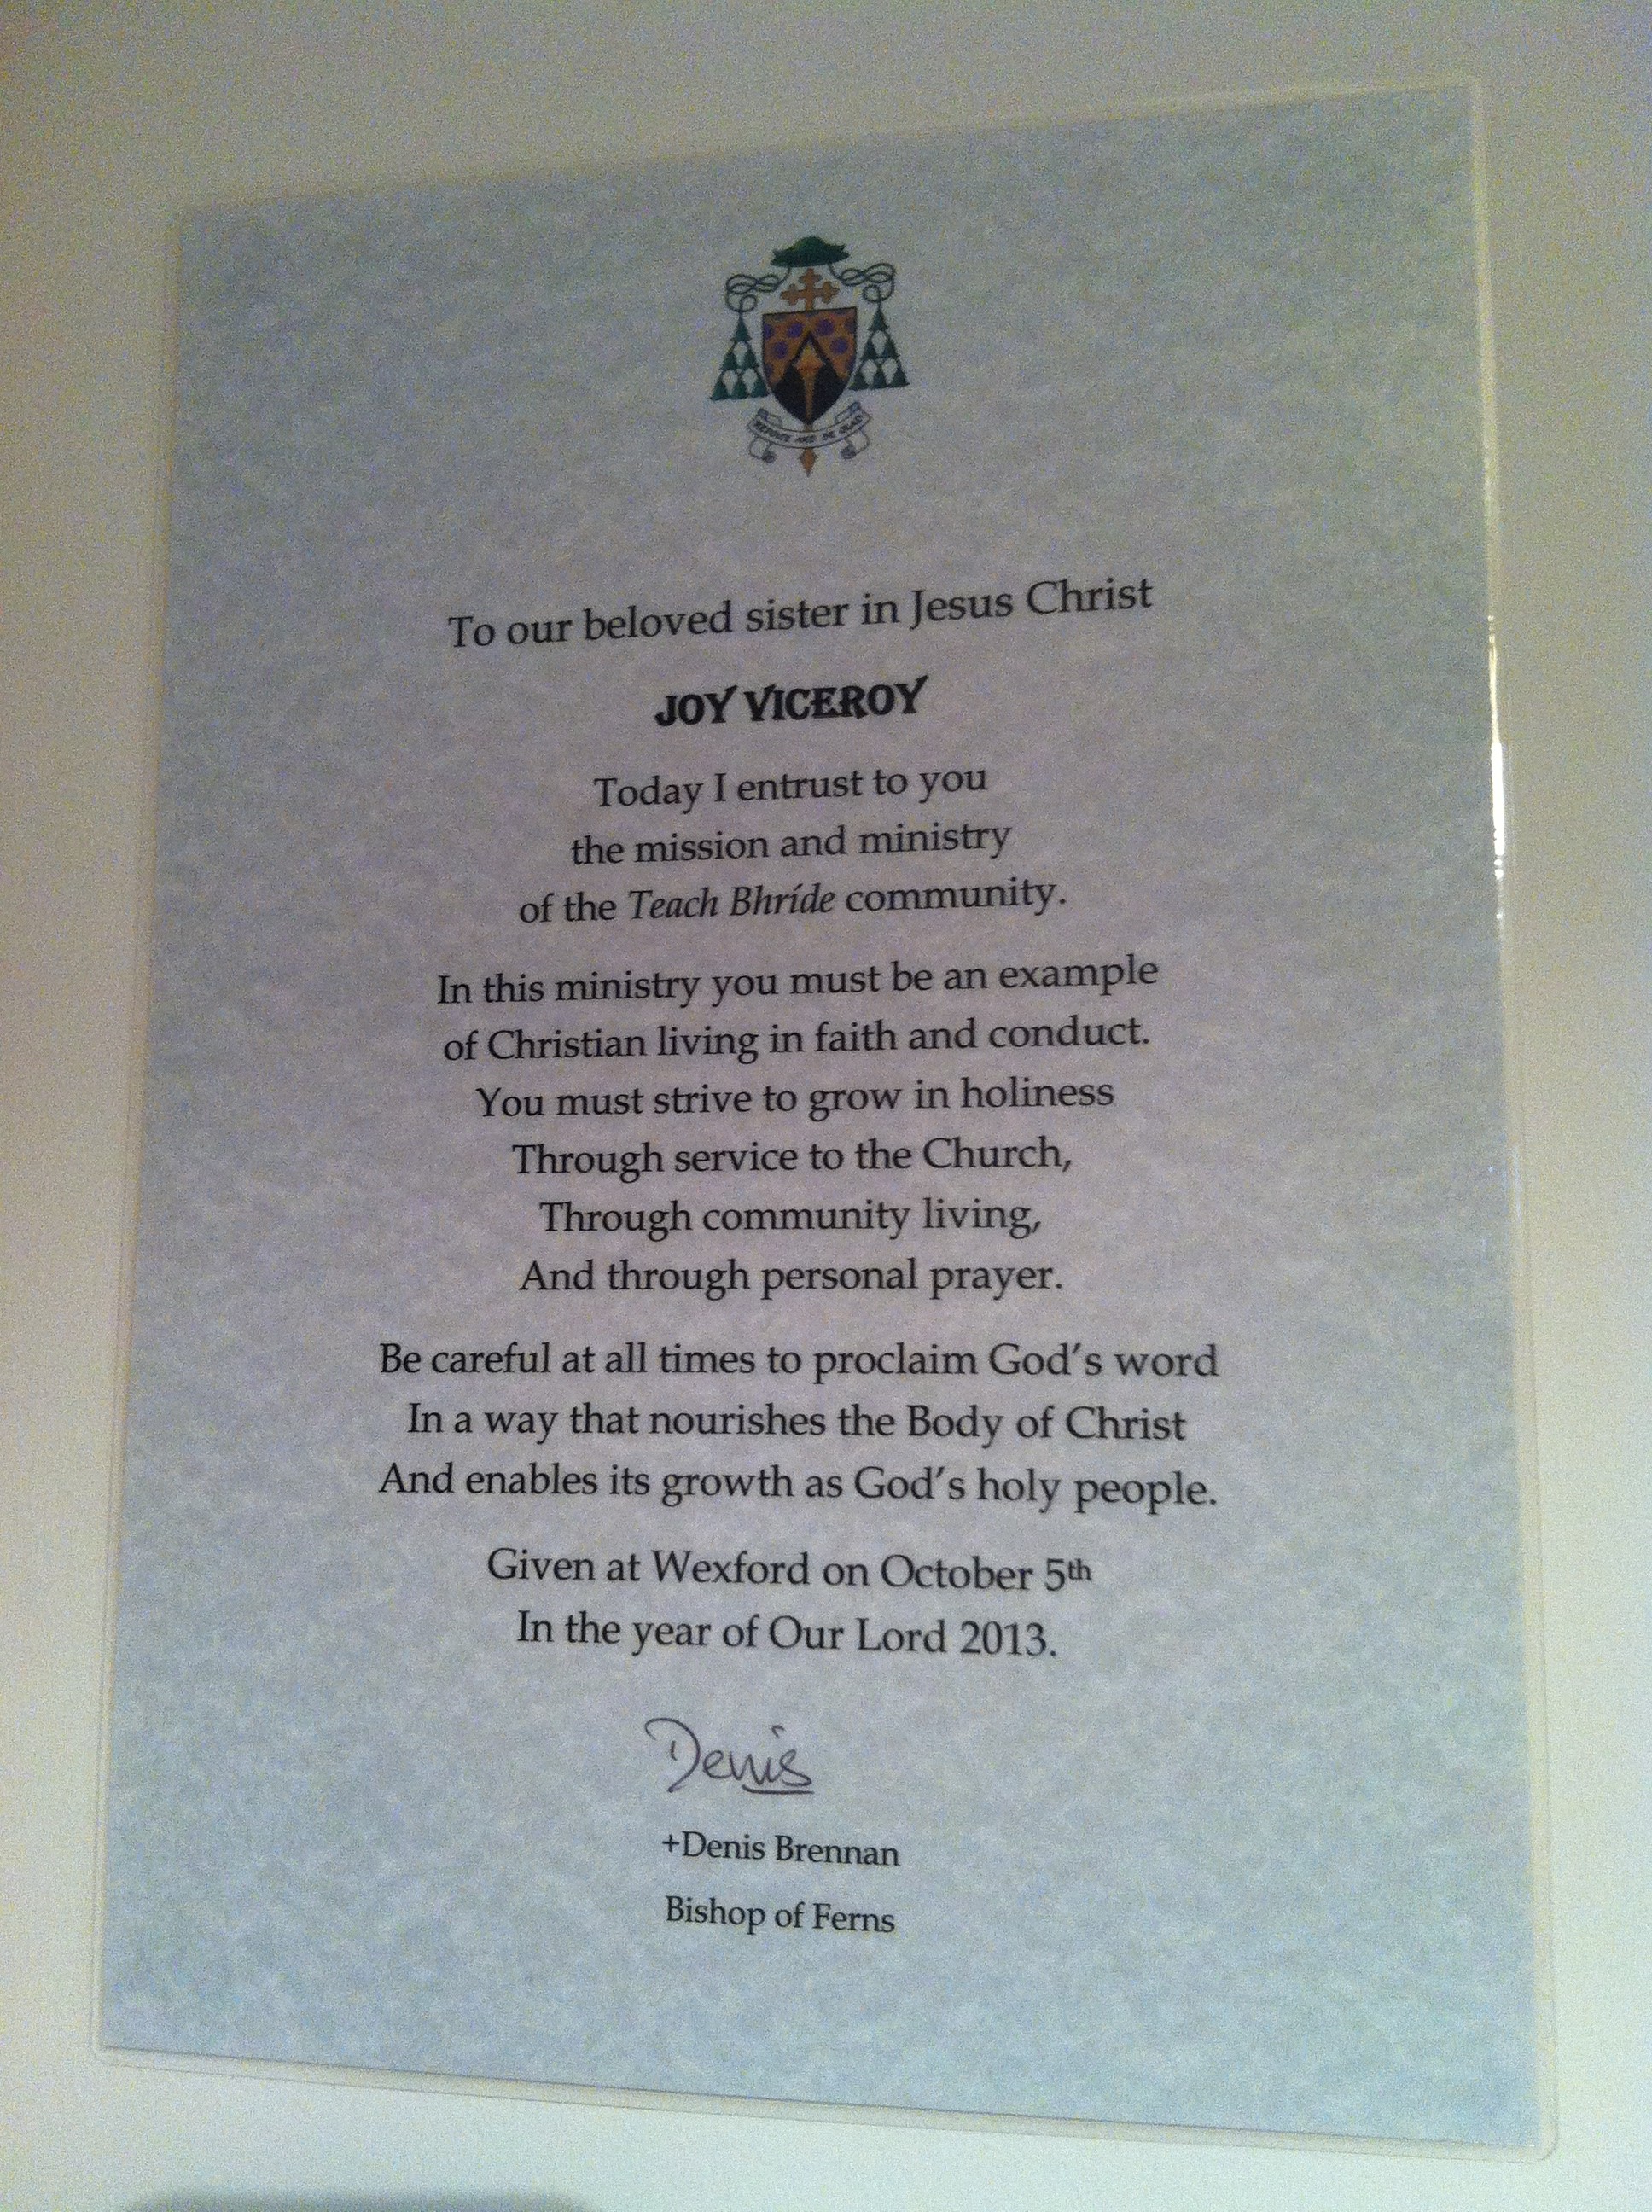 REJOICE AND BE GLAD
To our beloved sister in Jesus Christ
JOY VICEROY
Today I entrust to you
the mission and ministry
of the Teach Bhríde community.
In this ministry you must be an example
of Christian living in faith and conduct.
You must strive to grow in holiness
Through service to the Church,
Through community living,
And through personal prayer.
Be careful at all times to proclaim God's word
In a way that nourishes the Body of Christ
And enables its growth as God's holy people.
Given at Wexford on October 5th
In the year of Our Lord 2013.
Denis
+Denis Brennan
Bishop of Ferns